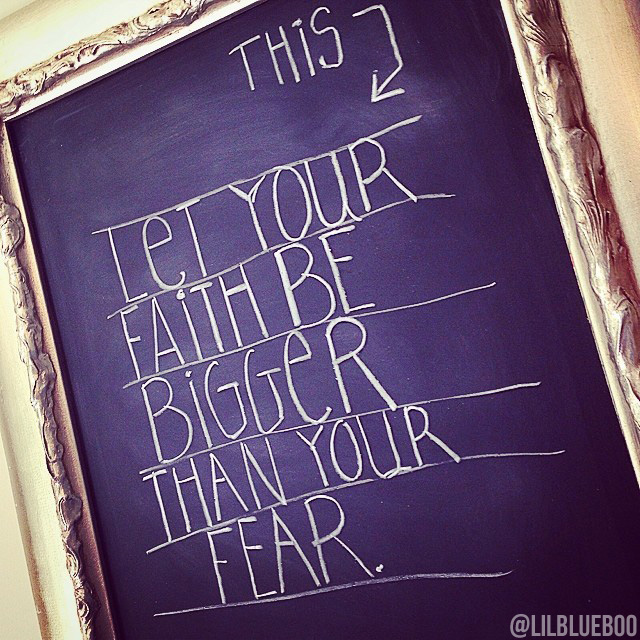 THiS
LeT YOUR
FAiTH BE
BiGGeR
THAN YOUR
FEAR.
@LILBLUEBOO